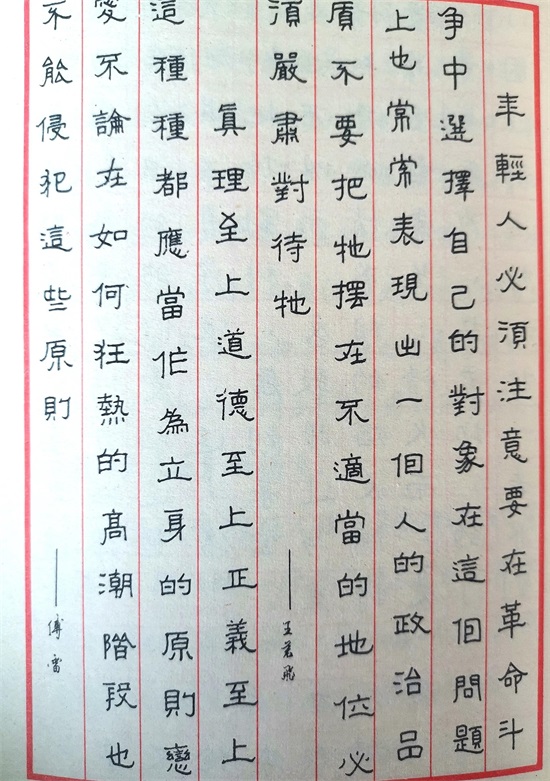 年輕人必須注意要在革命斗
争中選擇自己的對象在這個問題
上也常常表現出一個人的政治品
質不要把牠擺在不適當的地位必
須嚴肅對待牠
——王若飛
真理至上道德至上正義至上
這種種都應當作為立身的原則戀
愛不論在如何狂熱的高潮階段也
不能侵犯這些原則
——傅雷